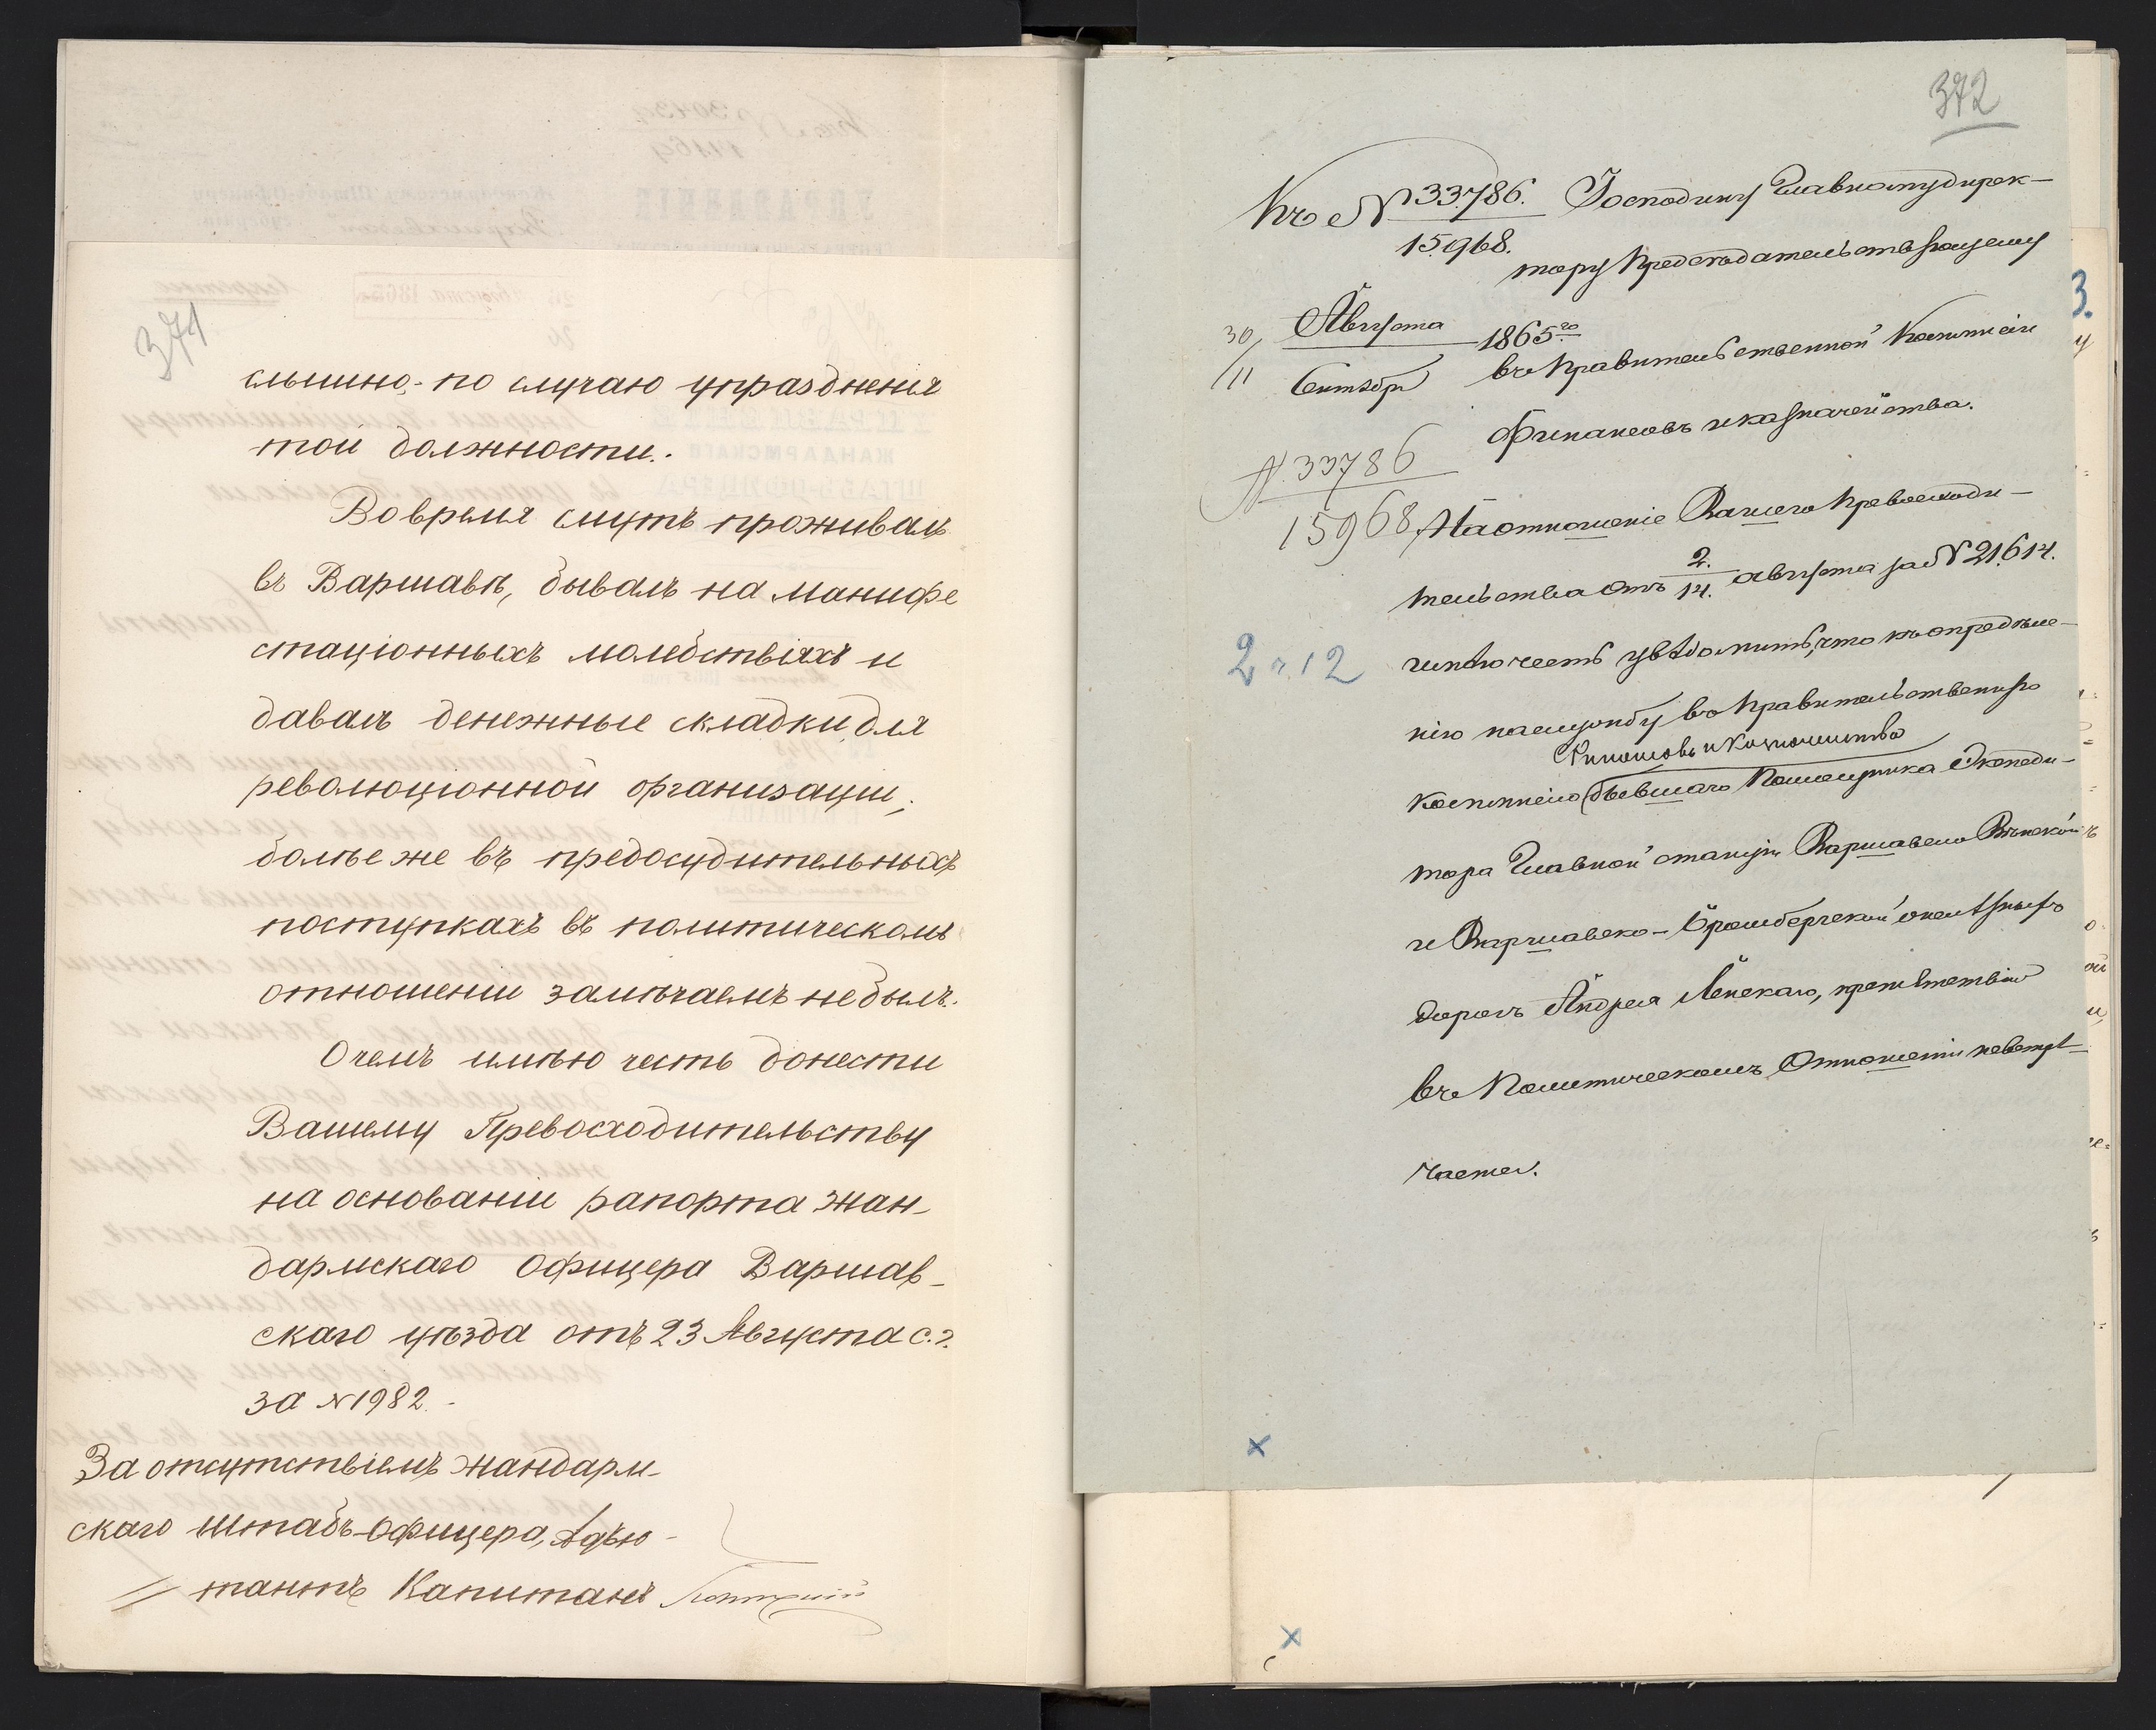 371
слышно,- по случаю упраздненія
той должности.-
Вовремя смутъ проживалъ
въ Варшавѣ, бывалъ на манифе
стаціонныхъ молебствіяхъ и
давалъ денежные складки для
революціонной организаціи;
болѣе же въ предосудительныхъ
поступкахъ въ политическомъ
отношеніи замѣчаемъ не былъ.
О чемъ имѣю честь донести
Вашему Превосходительству
на основаніи рапорта жан-
дармскаго Офицера Варшав-
скаго уѣзда отъ 23 Августа с.г.
за №1982.-
За отсутствіемъ жандарм-
скаго Штабъ-Офицера, Адъю-
тантъ Капитанъ
372
Къ № 33786. Господину Главному дирек-
15968.
тору Предсѣдательствующему
30/11 Августа Сентября 1865го
въ Правительственной Коммисіи
Финансовъ и казначейства.
N. 33786
15968
На отношеніе Вашего Превосходи-
тельства отъ 2./14. августа за № 21614.
имѣю честь увѣдомить, что къ опредѣле-
2 12
нію на службу въ Правительственную
Финансовъ и Казначейства
Коммисію бывшаго Помощника Экспеди-
тора Главной станціи Варшавско Вѣнской
и Варшавско-Бромбергской желѣзныхъ
дорогъ Андрея Ленскаго, препятствій
въ Политическомъ Отношеніи невстрѣ-
чаетъ.
3.